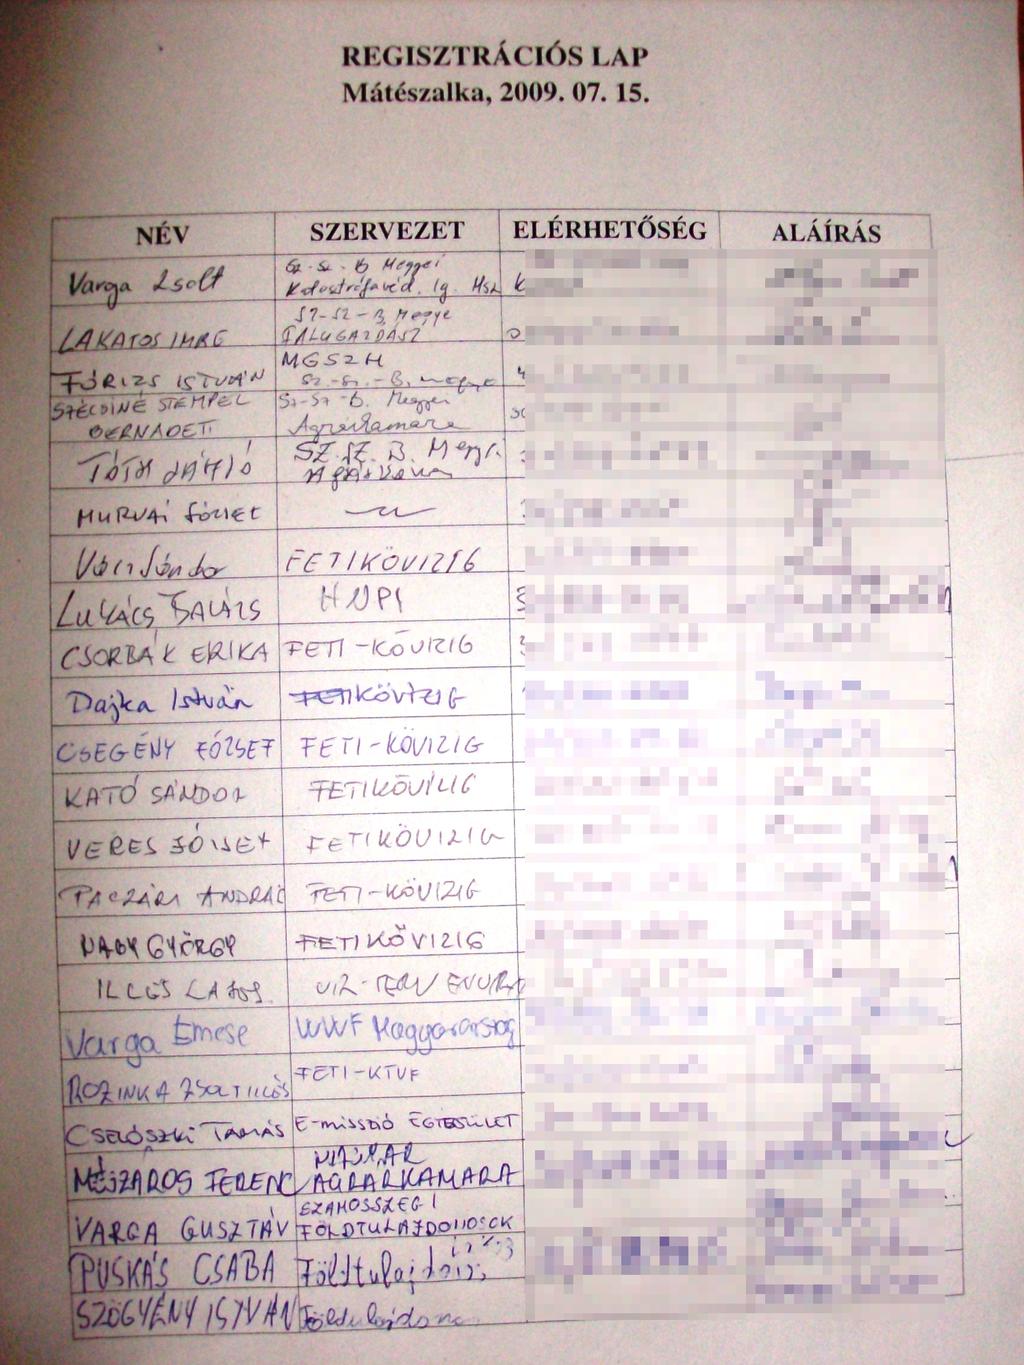 REGISZTRÁCIÓS LAP
Mátészalka, 2009. 07. 15.
NÉV SZERVEZET ELÉRHETŐSÉG ALÁÍRÁS
Varga Zsolt Sz-Sz-B Megyei
Katasztrófavéd. Ig. Msz
LAKATOS IMRE SZ-SZ-B Megye
FALUGAZDÁSZ
FÓRIZS ISTVÁN MGSZH
Sz.-Sz.-B. megye
STEMPEL
BERNADETT Sz-Sz-B. Megyei
Agrárkamara
TÓTH SZ.SZ.B. Megy.
MURVAI József
FETIKÖVIZIG
LUKÁCS BALÁZS HNPI
CSORBÁK ERIKA FETI-KÖVIZIG
Dajka István FETIKÖVIZIG
CSEGÉNY JÓZSEF FETI-KÖVIZIG
KATÓ SÁNDOR FETIKÖVIZIG
VERES JÓZSEF FETIKÖVIZIG
ANDRÁS FETI-KÖVIZIG
NAGY GYÖRGY FETIKÖVIZIG
ILLÉS LAJOS VIZ-TERV
Varga Emese WWF Magyarország
ROZINKA ZSOLT ILLÉS FETI-KTVF
CSELÓSZKI TAMÁS E-misszió EGYESÜLET
MÉSZÁROS FERENC AGRÁRKAMARA
VARGA GUSZTÁV SZAMOSSZEGI
FÖLDTULAJDONOSOK
PUSKÁS CSABA Földtulajdonos
SZÖGYÉNY ISTVÁN Földtulajdonos